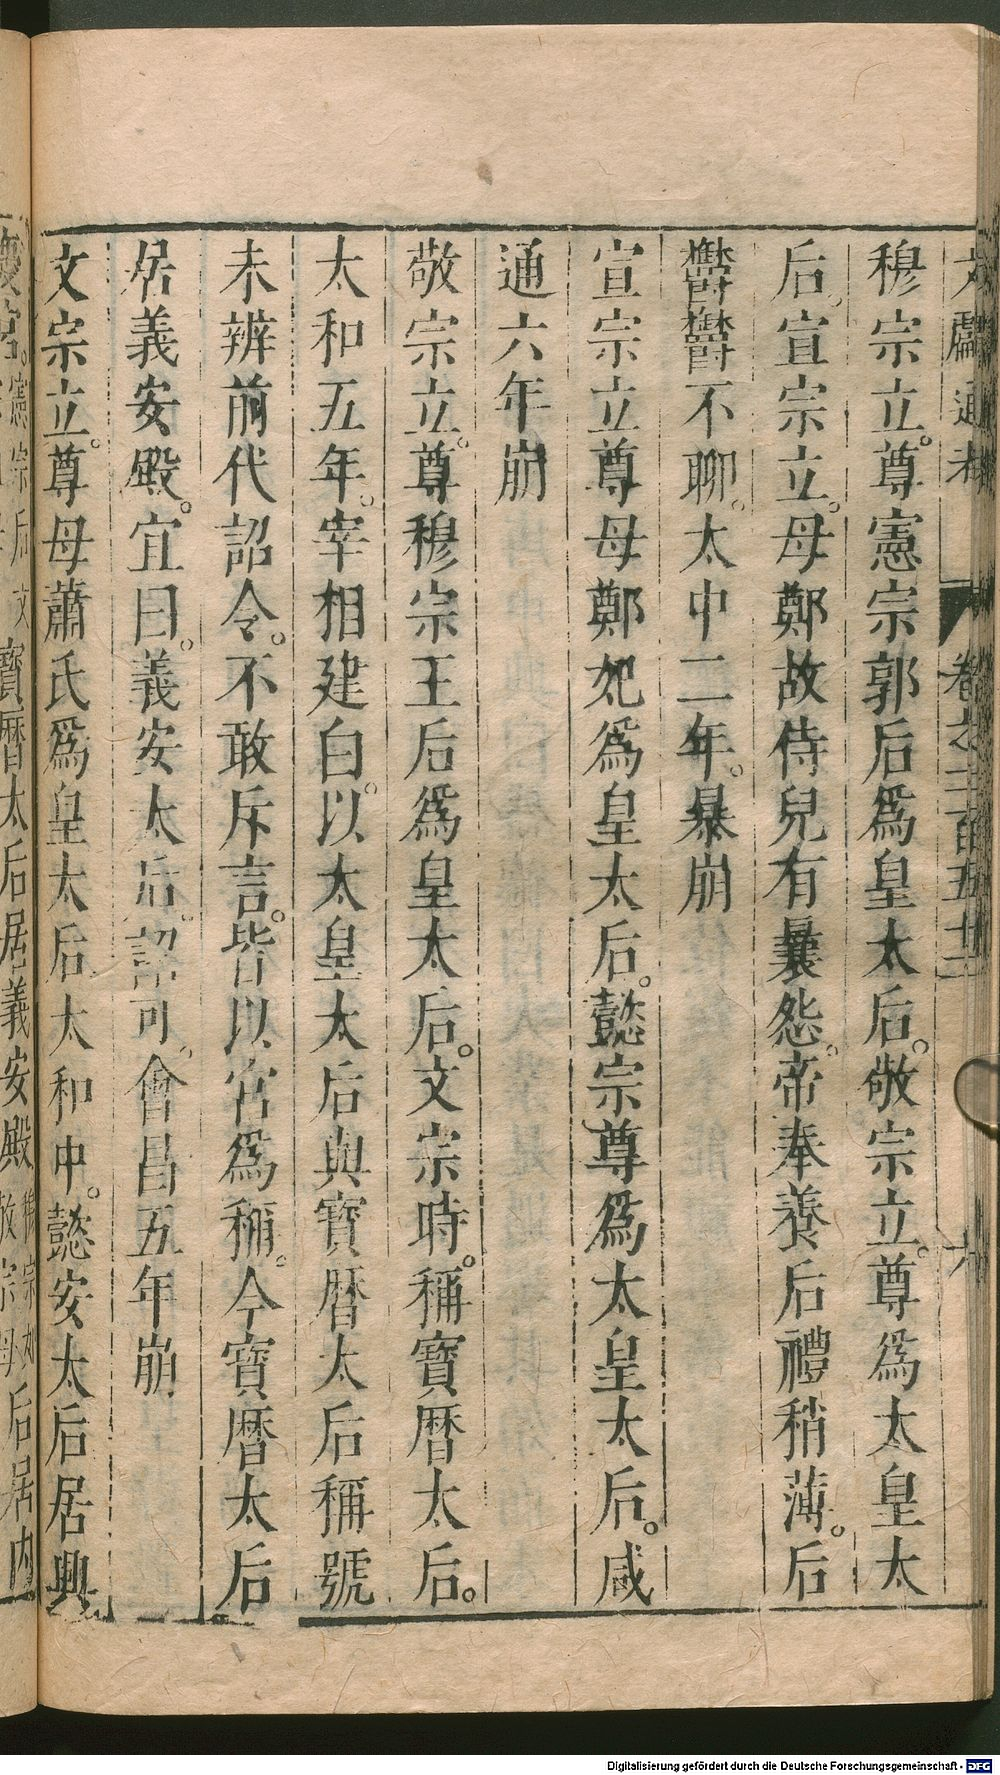 文獻通考 卷之二百五十二 六
穆宗立。尊憲宗郭后爲皇太后。敬宗立。尊爲太皇太
后。宣宗立。母鄭故侍兒有曩怨。帝奉養后禮稍薄。后
鬱鬱不聊。太中二年。暴崩
宣宗立尊母鄭妃爲皇太后。懿宗尊爲太皇太后。咸
通六年崩
敬宗立。尊穆宗王后爲皇太后。文宗時。稱寶曆太后。
太和五年。宰相建白。以太皇太后與寶曆太后稱號
未辨前代詔令。不敢斥言。皆以宮爲稱。今寶曆太后
居義安殿。宜曰。義安太后。詔可。會昌五年崩
文宗立。尊母蕭氏爲皇太后太和中。懿安太后居興
慶宮。憲宗后文 寶曆太后居義安殿 敬宗母 后居內
Digitalisierung gefördert durch die Deutsche Forschungsgemeinschaft - DFG